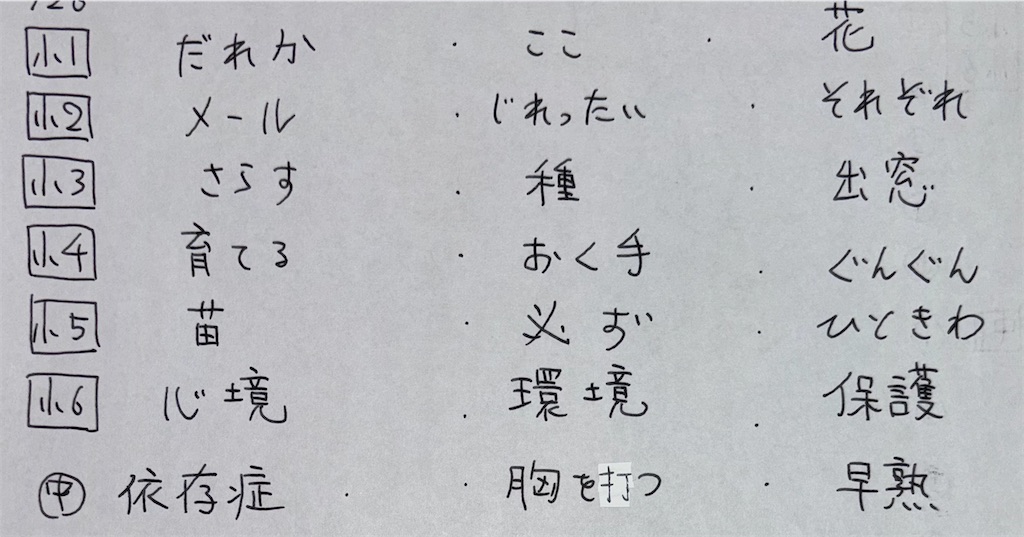 小1 だれか ・ ここ ・ 花
小2 メール ・ じれったい ・ それぞれ
小3 さらす ・ 種 ・ 出窓
小4 育てる ・ おく手 ・ ぐんぐん
小5 苗 ・ 必ず ・ ひときわ
小6 心境 ・ 環境 ・ 保護
中 依存症 ・ ・ 胸を打つ ・ 早熟